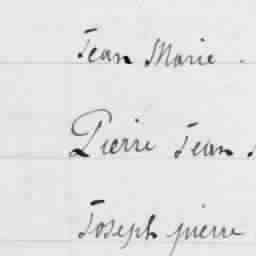 Jean Marie.
Pierre Jean
Joseph pierre